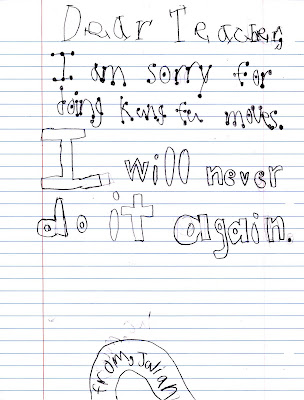 Dear Teacher,
I am sorry for
doing Kung fu moves.
I will never
do it again.
from, Jaliah